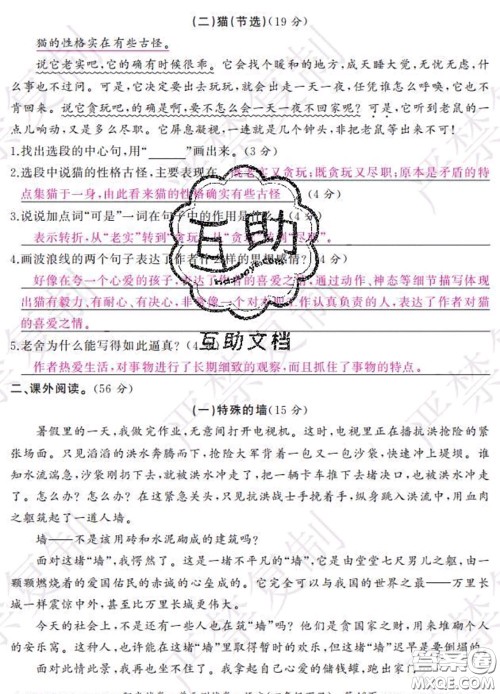 (二)猫(节选)(19 分)
猫的性格实在有些古怪。
说它老实吧,它的确有时候很乖。它会找个暖和的地方,成天睡大觉,无忧无虑,什
么事也不过问。可是,它决定要出去玩玩,就会出走一天一夜,任凭谁怎么呼唤,它也不
肯回来。说它贪玩吧,的确是啊,要不怎么会一天一夜不回家呢?可是,它听到老鼠的一
点儿响动,又是多么尽职。它屏息凝视,一连就是几个钟头,非把老鼠等出来不可!
1.找出选段的中心句,用“____”画出来。(3 分)
2.选段中说猫的性格古怪,主要表现在 老实又贪玩;既贪玩又尽职;原本是矛盾的特
点集猫于一身,由此看来猫的性格确实有些古怪 (4 分)
3.说说加点词“可是”一词在句子中的作用是什么
表示转折,从“老实”转到“贪玩”,从“贪玩”转到“尽职”。
4.画波浪线的两个句子表达了作者什么样的思想感情?(4 分)
好像在夸一个心爱的孩子,表达了作者的喜爱之情,通过动作、神态等细节描写体现
出猫有毅力、有耐心、有决心,非常尽职,像一个对工作认真负责的人,表达了作者对猫
的喜爱之情。
互助
互助文档
5.老舍为什么能写得如此逼真?(4 分)
作者热爱生活,对事物进行了长期细致的观察,而且抓住了事物的特点。
二、课外阅读。(56 分)
(一)特殊的墙(15 分)
暑假里的一天,我做完作业,无意间打开电视机。这时,电视里正在播抗洪抢险的紧
张场面。只见滔滔的洪水奔腾而下,抗洪大军背着一包又一包沙袋,快速冲上堤坝。谁
知水流湍急,沙袋刚扔下去,就被洪水冲走了,把一辆卡车推下去堵决口,也被洪水冲走
了。怎么办?怎么办?在这紧急关头,只见抗洪战士手挽着手,纵身跳入洪流中,用血肉
之躯筑起了一道人墙。
墙——不是该用砖和水泥砌成的建筑吗?
面对这堵“墙”,我愕然了。这是一堵不平凡的“墙”,它是由堂堂七尺男儿之躯,由一
颗颗燃烧着的爱国佑民的赤诚的心垒成的。它会因此而与我国的世界之最——万里长
城一样震惊中外,甚至比万里长城更伟大。
今天的社会上,不是还有一些人也在筑“墙”吗?他们是用贪婪自私的砖块来堆砌个人
的安乐窝。这种人,也许能在这堵“墙”内安然地度过一段时光,但这堵“墙”迟早是要倒的。
面对此情此景,我再也坐不住了。我小心地捧起自己心爱的储钱罐,跑出家门